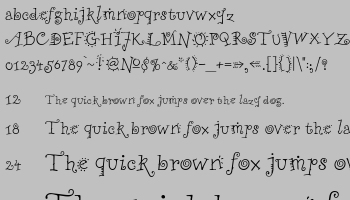 abcdefghijklmnopqrstuvwxyz
ABCDEFGHIJKLMNOPQRSTUVWXYZ
0123456789
12 The quick brown fox jumps over the lazy dog.
18 The quick brown fox jumps over the la
24 The quick brown fox jumps ov